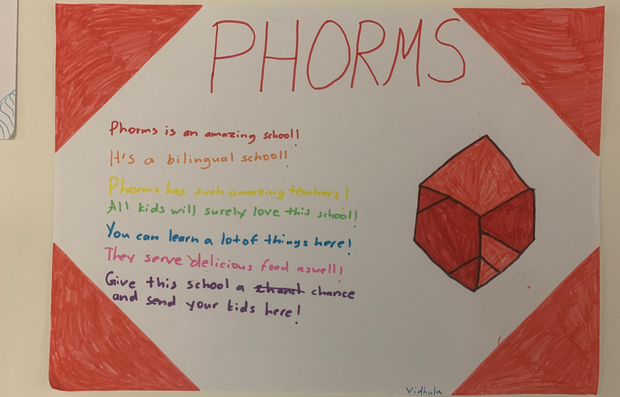 PHORMS
Phorms is an amazing school!
It's a bilingual school!
Phorms has such amazing teachers!
All kids will surely love this school!
You can learn a lot of things here!
They serve delicious food aswell!
Give this school a chance
and send your kids here!
Vidhula